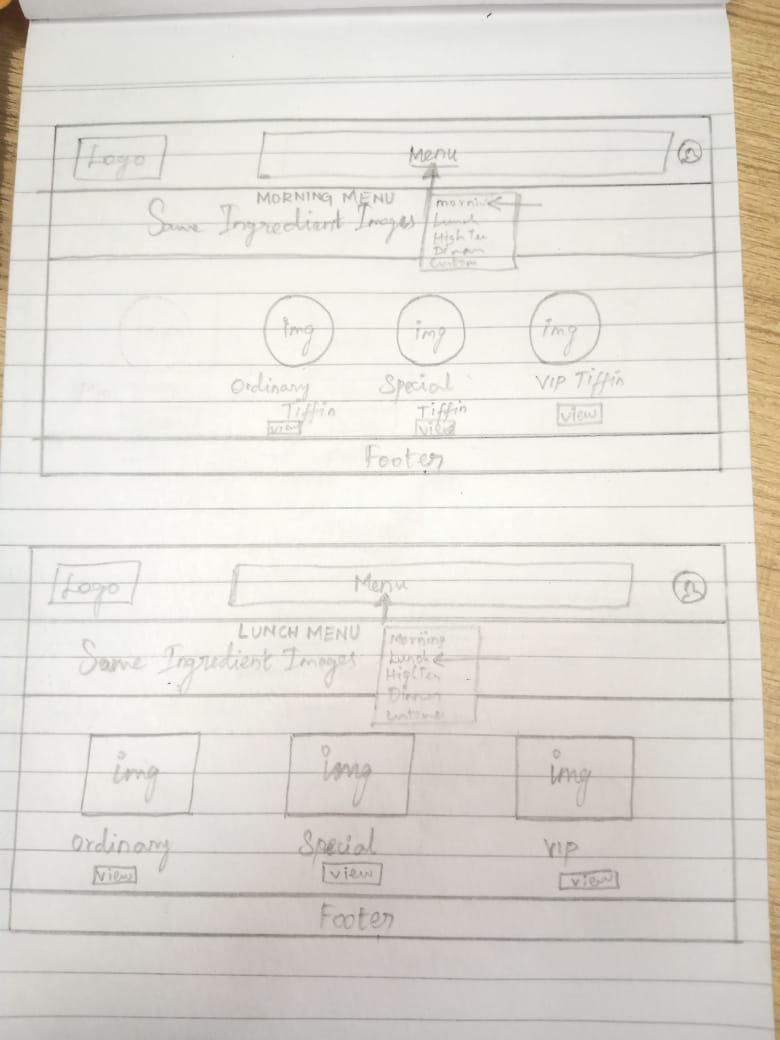 Logo
Menu
MORNING MENU
Same Ingredient Images
Morning
Lunch
High Tea
Dinner
Custom
img
img
img
Ordinary
Tiffin
view
Special
Tiffin
view
VIP Tiffin
view
Footer
Logo
Menu
LUNCH MENU
Same Ingredient Images
Morning
Lunch
Dinner
img
img
img
Ordinary
view
Special
view
VIP
view
Footer